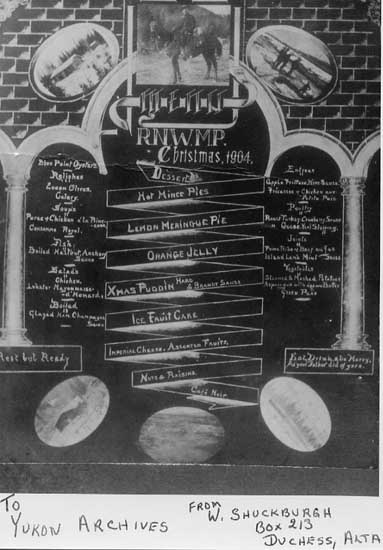 MENU
R.N.W.M.P.
Christmas, 1904.
Blue Point Oysters
Relishes
Queen Olives.
Celery.
Soups
Puree of Chicken
Consomme Royal.
Fish.
Boiled Halibut, Anchovy
Sauce
Salads
Chicken.
Lobster Mayonnaise
Boiled
Glazed Ham Champagne
Sauce
Desserts
Hot Mince Pies
Lemon Meringue Pie
Orange Jelly
Xmas Puddin Hard & Brandy Sauce
Ice Fruit Cake
Imperial Cheese, Assorted Fruits,
Nuts & Raisins.
Café Noir
Entrees
Apple Fritters,
Fricassee of Chicken
Petits Pois
Poultry
Roast Turkey, Cranberry Sauce
Goose,
Joints
Prime Ribs of Beef
Island Lamb Mint Sauce
Vegetables
Steamed & Mashed Potatoes
Asparagus
Green Peas
Rest but Ready
Eat, Drink & be Merry,
as your father did of yore.
To
Yukon Archives
From
W. Shuckburgh
Box 213
Duchess, Alta